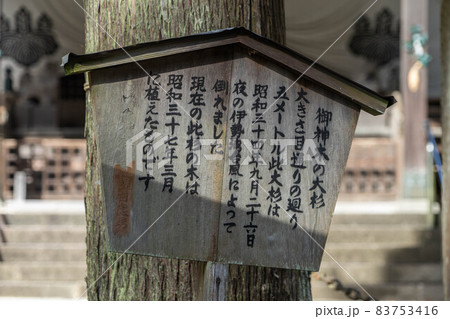 御神木の大杉
大きさ目通りの廻り
五メートル此大杉は
昭和三十四年九月二十六日
夜の伊勢湾台風によって
倒れました
現在の此杉の木は
昭和三十七年三月
に植えたものです
83753416